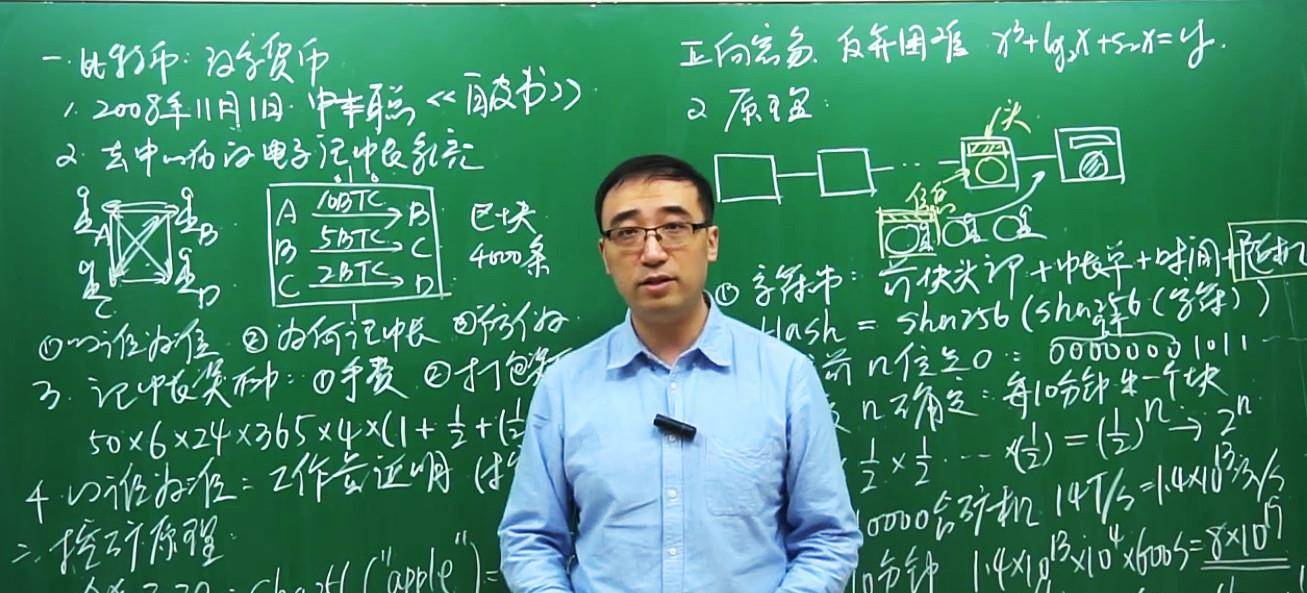 一.比特币:数字货币
1. 2008年11月1日.中本聪《白皮书》
2.去中心化的电子记帐系统
A B C D
A 10BTC B
B 5BTC C
C 2BTC D
区块
4000条
①以谁为准 ②为何记帐 ③防伪
3.记帐奖励:①手费 ②打包奖
50×6×24×365×4×(1+1/2+(1/2
4.以谁为准:工作量证明(
二.挖矿原理:
("apple")=
正向容易.反算困难 x³+lg₂x+5 x=y.
2.原理:
头
信息
①字符串:前块头部+帐单+时间+随机
Hash = sha256(sha256(字符))
前n位是0: 00000001011
n不确定:每10分钟出一个块
1/2×1/2…×(1/2)=(1/2)ⁿ→2ⁿ
10000台矿机 14T/s=1.4×10¹³次/s
10分钟 1.4×10¹³×10⁴×600s=8×10¹⁹